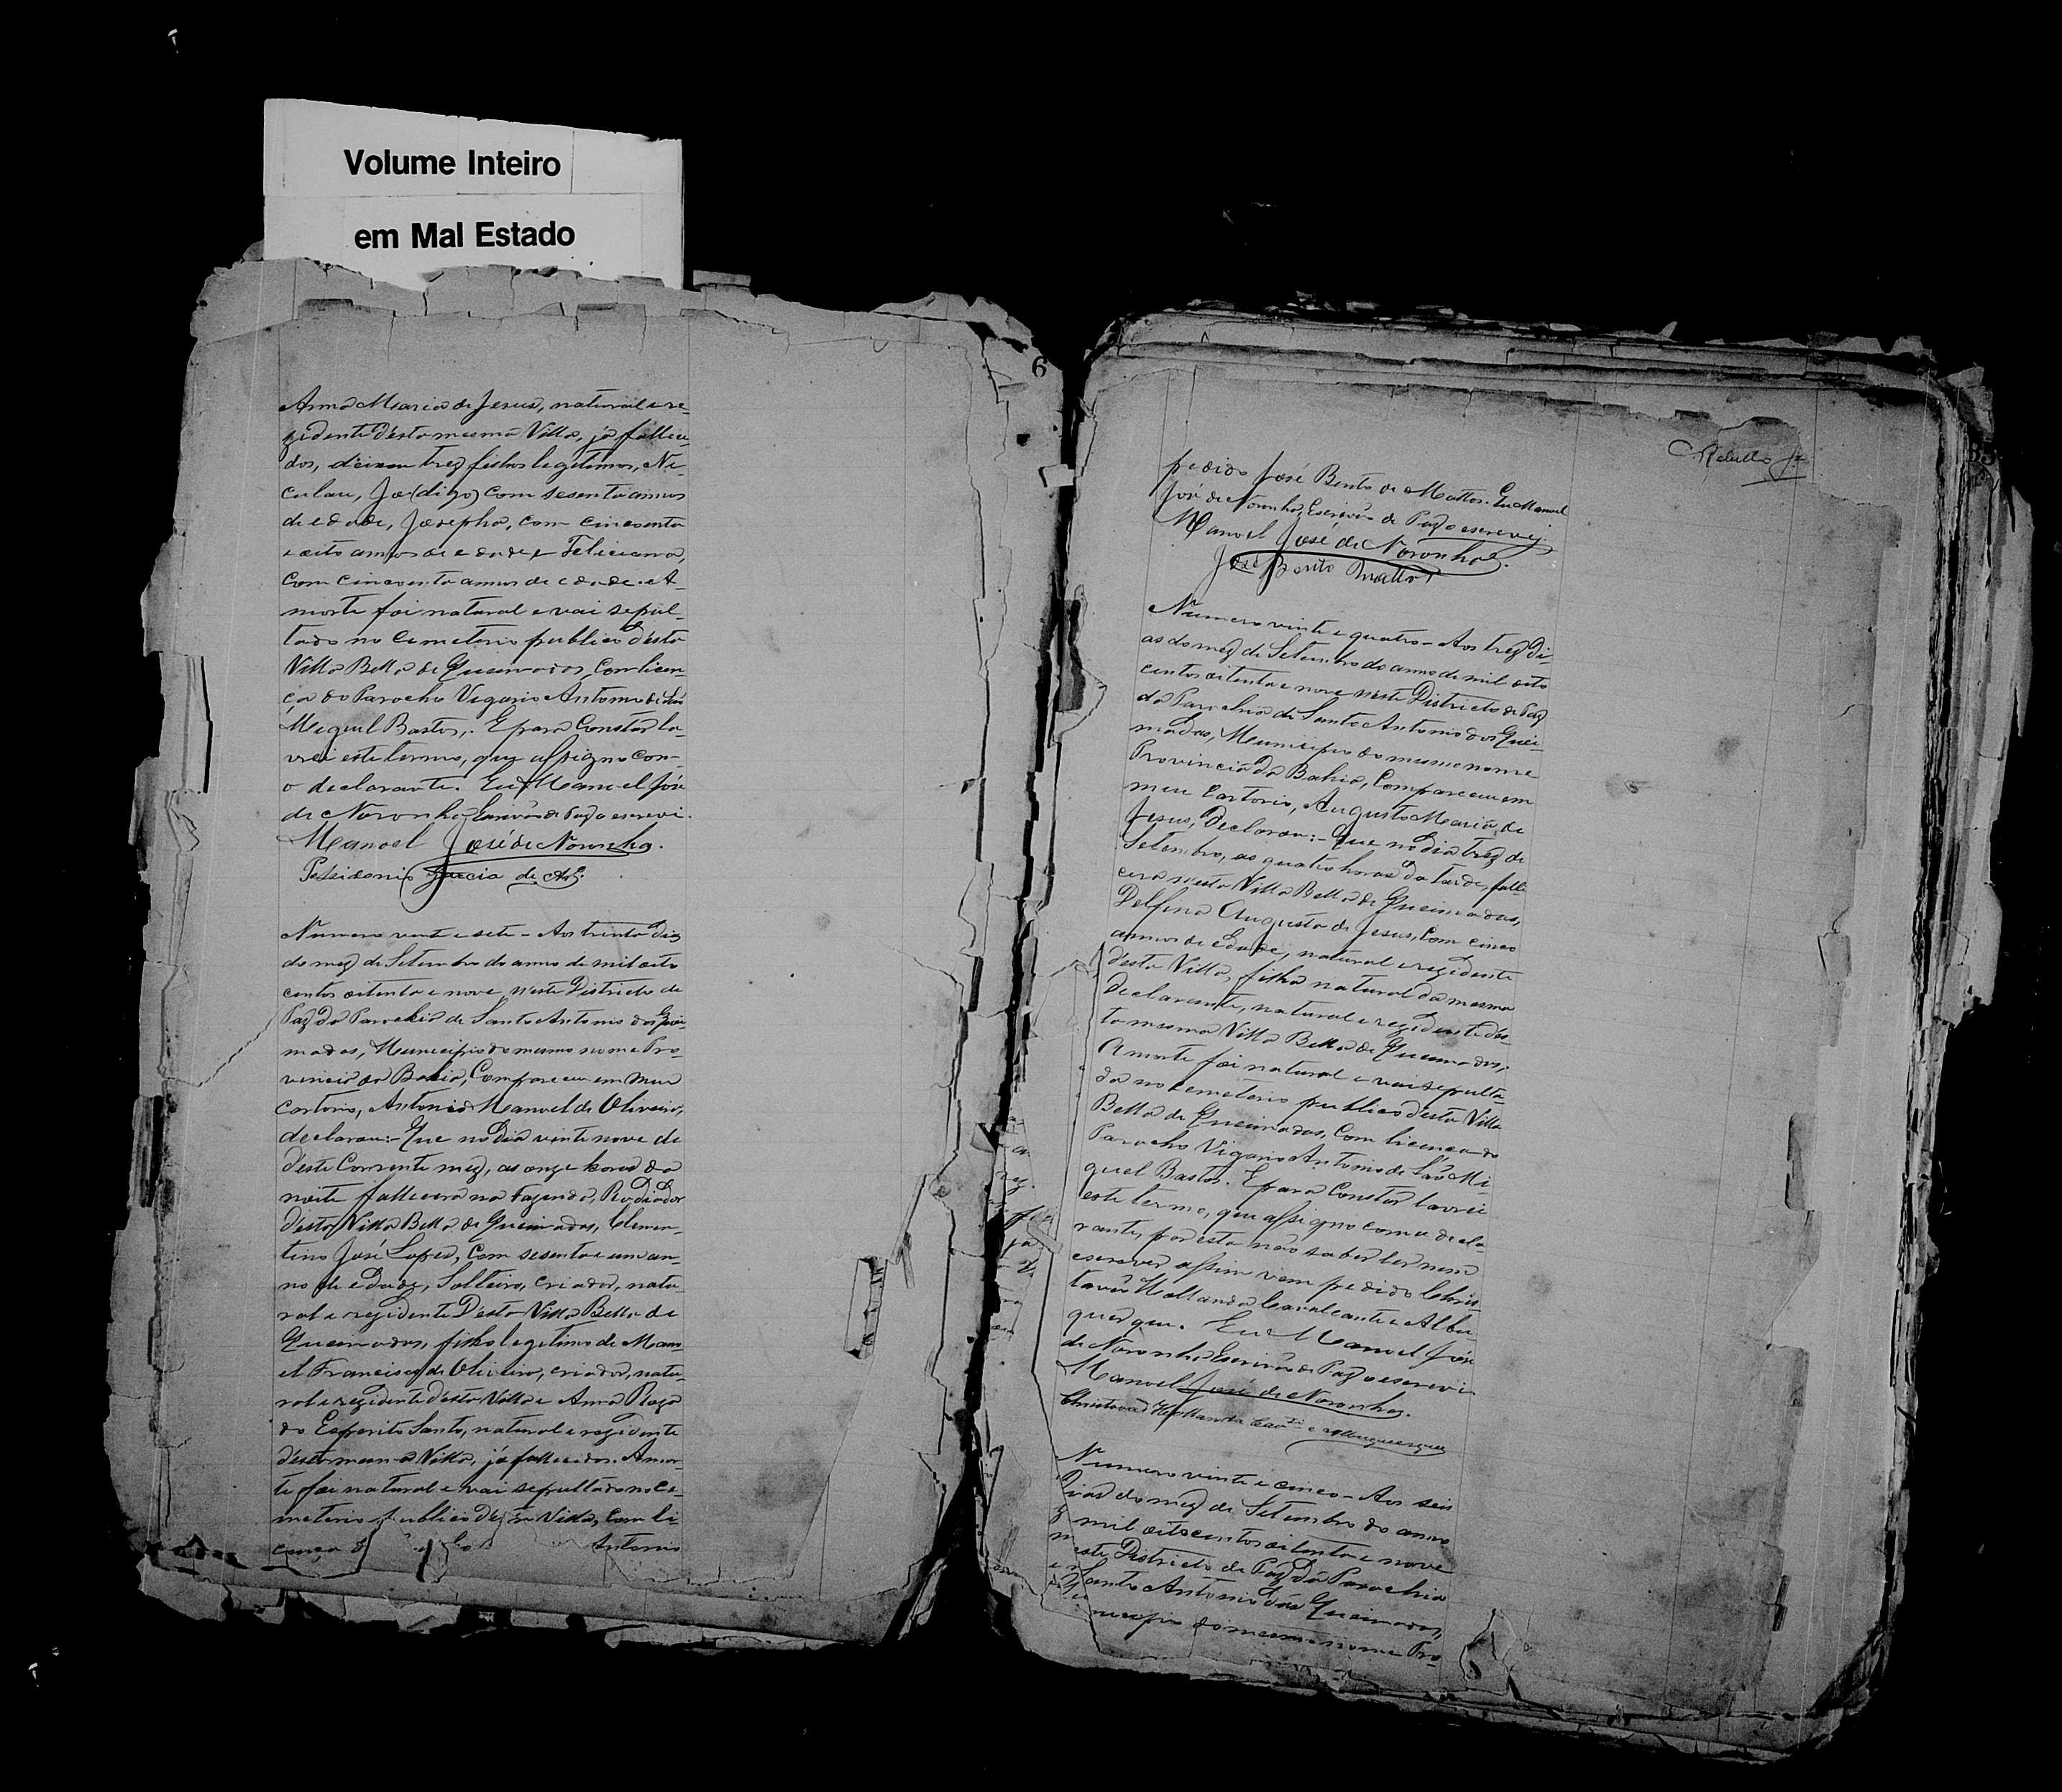 Volume Inteiro
em Mal Estado
Anna Maria de Jesus, natural e re-
zidente d'esta mesma Villa, já falleci-
dos, deixou trez filhos legitimos, Ni-
culau, Jo (digo) com sesenta annos
de edade, Josepha, com cincoenta
e oito annos de edade e Feliciana,
com cincoenta annos de edade. A
morte foi natural e vai sepul-
tado no Cemeterio publico d'esta
Villa Bella de Queimadas, com licen-
ça do Parocho Vigario Antonio de São
Miguel Bastos. E para Constar la-
vrei este termo, que assigno com
o declarante. Eu Manoel José
de Noronha Escrivão de Paz o escrevi.
Manoel José de Noronha.
Garcia de
Numero vente e sete - Aos trinta dias
do mez de Setembro do anno de mil oito
centos oitenta e nove, n'este Districto de
Paz da Parochia de Santo Antonio das Quei-
madas, Municipio do mesmo nome Pro-
vincia da Bahia, Compareceu em meu
Cartorio, Antonio Manoel de Oliveira,
declarou:- Que no dia vinte nove de
d'este Corrente mez, as onze horas da
noite fallecera na Fazenda, Rodiador
d'esta Villa Bella de Queimadas, Clemen-
tino José Lopes, com sesenta e um an-
no de edade, Solteiro, criador, natu-
ral e rezidente D'esta Villa Bella de
Queimadas, filho legitimo de Mano-
el Francisco de Oliveira, criador, natu-
ral e rezidente desta Villa e Anna Roza
do Esperito Santo, natural e rezidente
d'esta mesma Villa, já fallecidos. A mor-
te foi natural e vai sepultado no Ce-
meterio publico d'esta Villa, com li-
cença Antonio
6
Rebello
pedido José Bento de Mattos. Eu Manoel
José de Noronha, Escrivão de Paz o escrevi.
Manoel José de Noronha.
José Bento Mattos
Numero vinte e quatro - Aos trez di-
as do mez de Setembro do anno de mil oito
centos oitenta e nove n'este Districto de Paz
da Parochia de Santo Antonio das Quei-
madas, Municipio do mesmo nome
Provincia da Bahia, Compareceu em
meu Cartorio, Augusta Maria de
Jesus, Declarou:- Que no dia trez de
Setembro, as quatro horas da tarde, falle-
cera n'esta Villa Bella de Queimadas,
Delfina Augusta de Jesus, com cinco
annos de Edade, natural e rezidente
d'esta Villa, filha natural da mesma
Declarante, natural e rezidente d'es-
ta mesma Villa Bella de Queimadas,
A morte foi natural e vai sepulta-
da no Cemeterio publico d'esta Villa
Bella de Queimadas, Com licença do
Parocho Vigario Antonio de São Mi-
guel Bastos. E para Constar lavrei
este termo, que assigno com a decla-
rante, por esta não saber ler nem
escrever assim vem pedido Chris-
tavão Hollanda Cavalcante e Albu-
querque. Eu Manoel José
de Noronha Escrivão de Paz o escrevi
Manoel José de Noronha.
Christovão Hollanda Cavti e Albuquerque
Numero vinte e cinco - Aos seis
dias do mez de Setembro do anno
mil oitocentos oitenta e nove
neste Districto de Paz da Parochia
Santo Antonio das Queimadas,
do mesmo nome Pro-